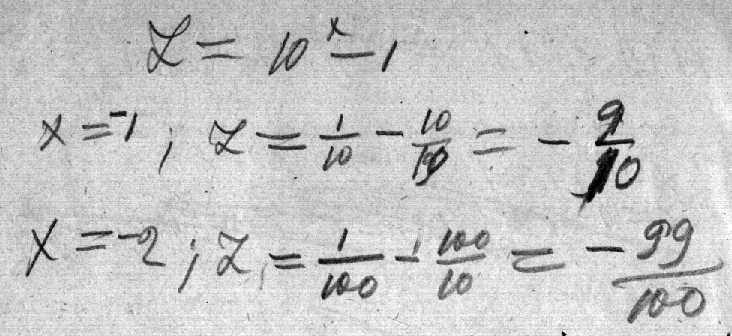 z = 10^x - 1
x = -1 ; z = 1/10 - 10/10 = - 9/10
x = -2 ; z = 1/100 - 100/10 = - 99/100